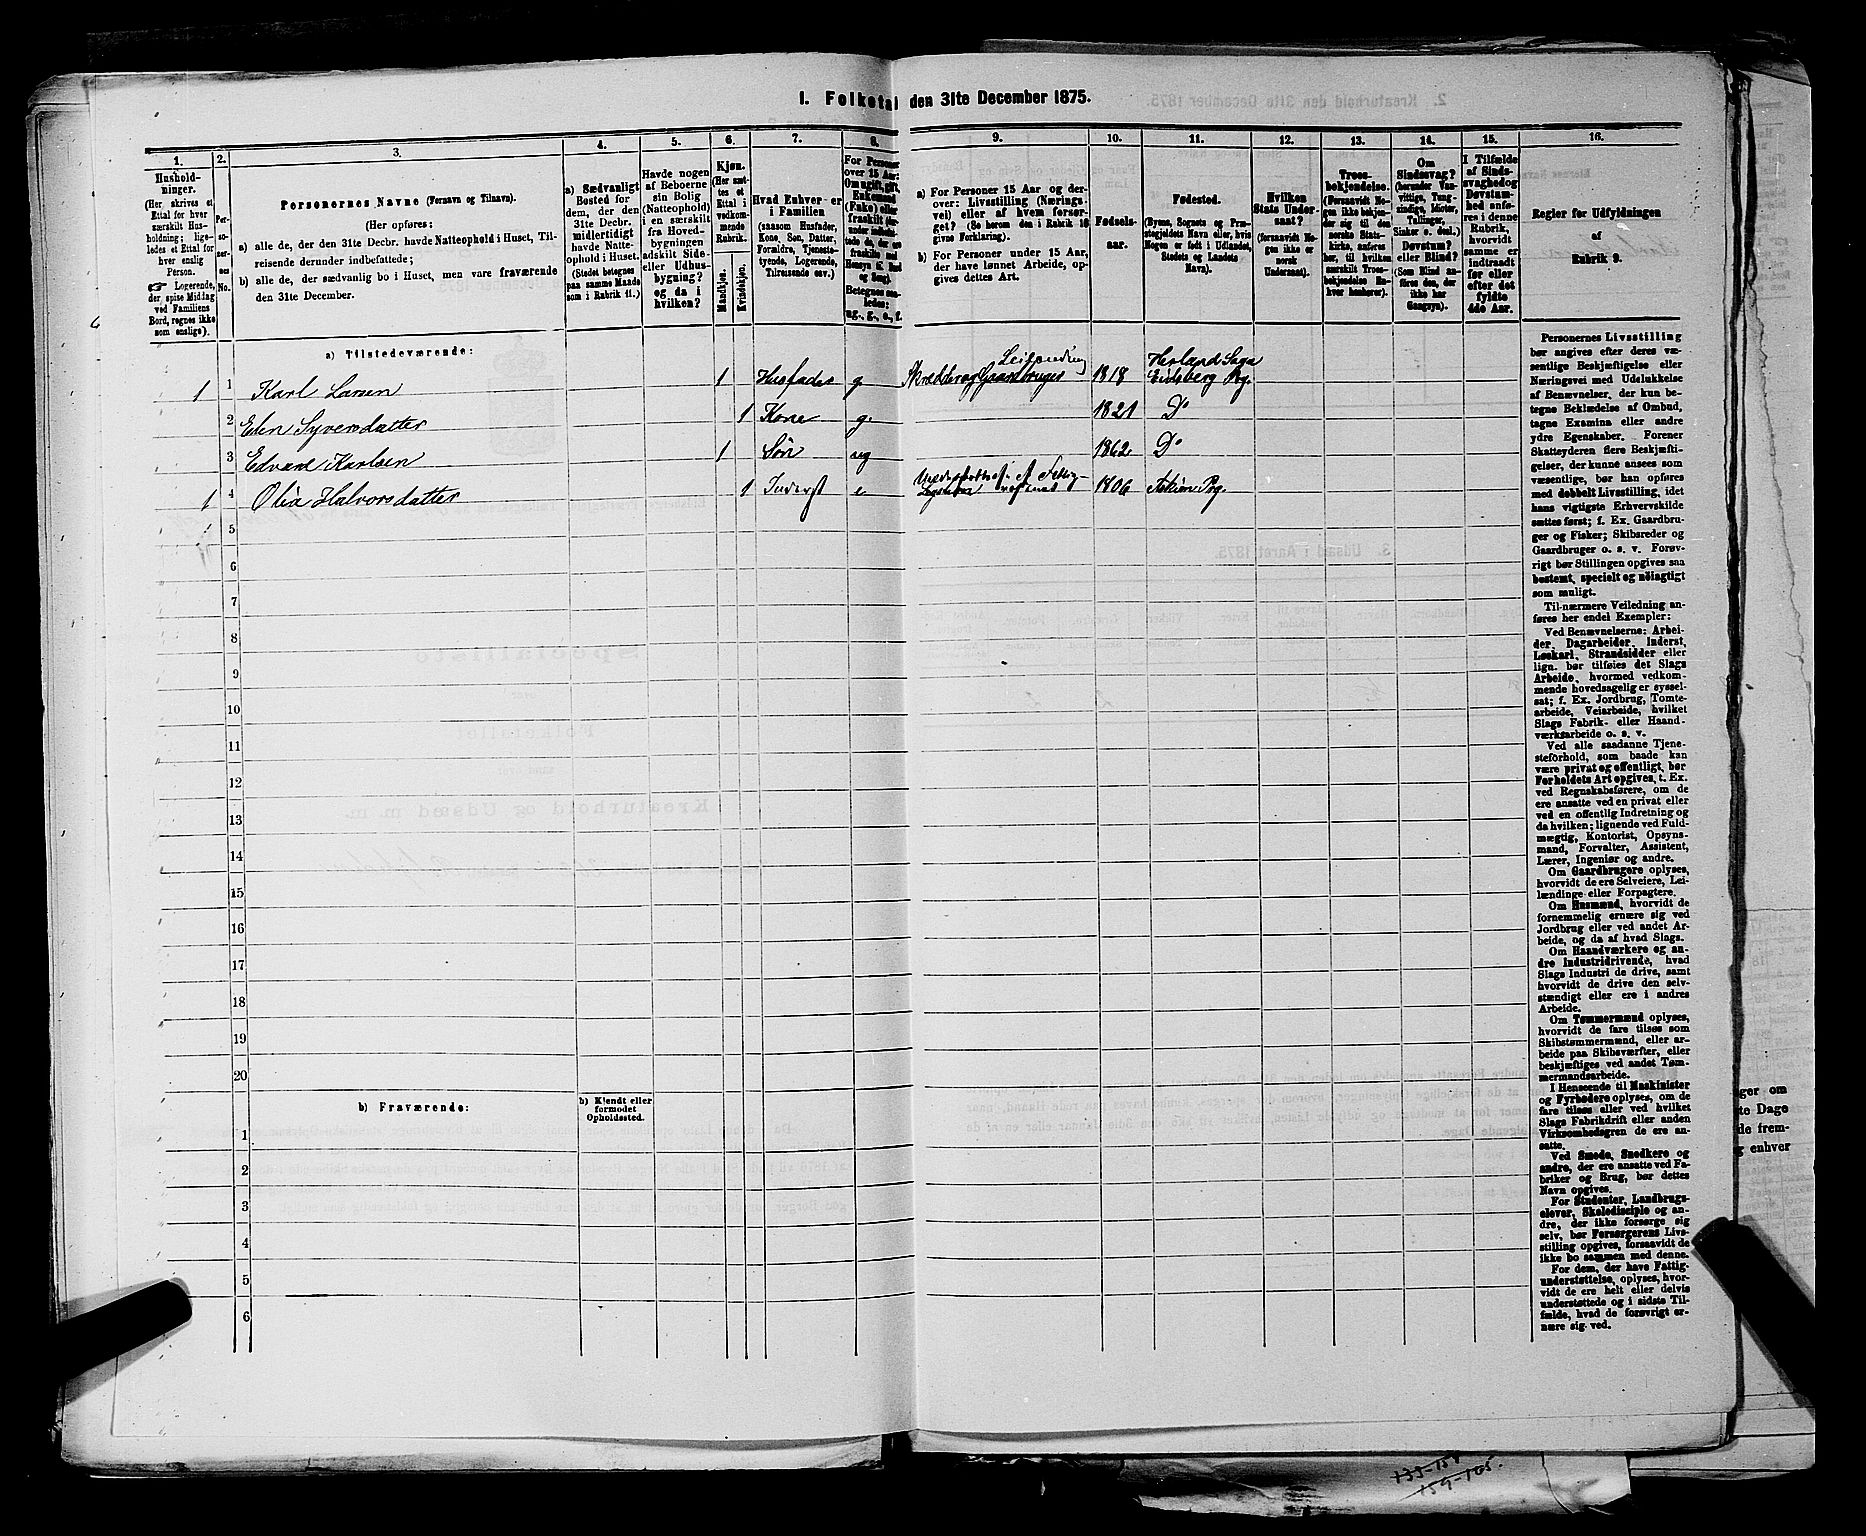 1. Folketal den 31te December 1875.
1.
Hushold-
ninger.
(Her skrives et
Ettal for hver
særskilt Hus-
holdning; lige-
ledes et Ettal for
hver enslig
Person.
Logerende,
der spise Middag
ved Familiens
Bord, regnes ikke
som enslige).
2.
Per-
so-
ner-
nes
No.
3.
Personernes Navne (Fornavn og Tilnavn).
(Her opføres:
a) alle de, der den 31te Decbr. havde Natteophold i Huset, Til-
reisende derunder indbefattede;
b) alle de, der sædvanlig bo i Huset, men vare fraværende
den 31te December.
4.
a) Sædvanligt
Bosted for
dem, der den
31te Decbr.
midlertidigt
havde Natte-
ophold i Huset.
(Stedet betegnes
paa samme Maade
som i Rubrik 11.)
5.
Havde nogen
af Beboerne
sin Bolig
(Natteophold)
i en særskilt
fra Hoved-
bygningen
adskilt Side-
eller Udhus-
bygning?
og da i
hvilken?
6.
Kjøn.
(Her sæt-
tes et
Ettal i
vedkom-
mende
Rubrik.
Mandkjøn.
Kvindekjøn.
7.
Hvad Enhver er
i Familien
(saasom Husfader,
Kone, Søn, Datter,
Forældre, Tjeneste-
tyende, Logerende,
Tilreisende osv.)
8.
For Personer
over 15 Aar:
Om ugift, gift,
Enkemand
(Enke) eller
fraskilt
Betegnes saa-
ledes:
ug., g., e., f.
9.
a) For Personer 15 Aar og der-
over: Livsstilling (Nærings-
vei) eller af hvem forsør-
get? (Se herom den i Rubrik 16
givne Forklaring).
b) For Personer under 15 Aar,
der have lønnet Arbeide, op-
gives dettes Art.
10.
Fødsels-
aar.
11.
Fødested.
(Byens, Sognets og Præ-
stegjeldets Navn eller, hvis
Nogen er født i Udlandet,
Stedets og Landets
Navn).
12.
Hvilken
Stats Under-
saat?
(forsaavidt No-
gen ikke er
norsk
Undersaat).
13.
Troes-
bekjendelse.
(Forsaavidt No-
gen ikke bekjen-
der sig til den
norske Stats-
kirke, anføres
her, til hvilken
særskilt Troes-
bekjendelse En-
hver henhører).
14.
Om
Sindssvag?
(herunder Van-
vittige, Tung-
sindige, Idioter,
Tullinger,
Sinker o. desl.)
Døvstum?
eller Blind?
(Som Blind an-
føres den, der
ikke har
Gangsyn).
15.
I Tilfælde
af Sinds-
svaghed og
Døvstum-
hed anfø-
res i denne
Rubrik,
hvorvidt
samme er
indtraadt
før eller
efter det
fyldte
4de Aar.
16.
Regler for Udfyldningen
af
Rubrik 9.
a) Tilstedeværende:
1 1 Karl Larsen 1 Husfader g Skrædder og Gaardbruger Leilænding 1818 Herland Sogn Eidsberg Pg.
2 Elen Syversdatter 1 Kone g. 1821 Do
3 Edvard Karlsen 1 Søn ug 1862 Do
1 4 Olia Halvorsdatter 1 Inderst e 1806 Askim Pg.
5
6
7
8
9
10
11
12
13
14
15
16
17
18
19
20
b) Fraværende:
b) Kjendt eller
formodet
Opholdssted.
1
2
3
4
5
6
Personernes Livsstilling
bør angives efter deres væ-
sentlige Beskjæftigelse eller
Næringsvei med Udelukkelse
af Benævnelser, der kun be-
tegne Beklædelse af Ombud,
tagne Examina eller andre
ydre Egenskaber. Forener
Skatteyderen flere Beskjæfti-
gelser, der kunne ansees som
væsentlige, bør han opføres
med dobbelt Livsstilling, idet
hans vigtigste Erhvervskilde
sættes først; f. Ex. Gaardbru-
ger og Fisker; Skibsreder og
Gaardbruger o. s. v. Forøv-
rigt bør Stillingen opgives saa
bestemt, specielt og nøiagtigt
som muligt.
Til nærmere Veiledning an-
føres her endel Exempler:
Ved Benævnelserne: Arbei-
der, Dagarbeider, Inderst,
Løskarl, Strandsidder eller
lign. bør tilføies det Slags
Arbeide, hvormed vedkom-
mende hovedsagelig er syssel-
sat; f. Ex. Jordbrug, Tomte-
arbeide, Veiarbeide, hvilket
Slags Fabrik- eller Haand-
værksarbeide o. s. v.
Ved alle saadanne Tjene-
steforhold, som baade kan
være privat og offentligt, bør
Forholdets Art opgives, t. Ex.
ved Regnskabsførere, om de
ere ansatte ved en privat eller
ved en offentlig Indretning og
da hvilken; lignende ved Fuld-
mægtig, Kontorist, Opsyns-
mand, Forvalter, Assistent,
Lærer, Ingeniør og andre.
Om Gaardbrugere oplyses,
hvorvidt de ere Selveiere, Lei-
lændinge eller Forpagtere.
Om Husmænd, hvorvidt de
fornemmelig ernære sig ved
Jordbrug eller ved andet Ar-
beide, og da af hvad Slags.
Om Haandværkere og an-
dre Industridrivende, hvad
Slags Industri de drive, samt
hvorvidt de drive den selv-
stændigt eller ere i andres
Arbeide.
Om Tømmermænd oplyses,
hvorvidt de fare tilsøs som
Skibstømmermænd, eller ar-
beide paa Skibsværfter, eller
beskjæftiges ved andet Tøm-
mermandsarbeide.
I Henseende til Maskinister
og Fyrbødere oplyses, om de
fare tilsøs eller ved hvilket
Slags Fabrikdrift eller anden
Virksomhedsgren de ere an-
satte.
Ved Smede, Snedkere og
andre, der ere ansatte ved Fa-
briker og Brug, bør dettes
Navn opgives.
For Studenter, Landbrugs-
elever, Skoledisciple og an-
dre, der ikke forsørge sig
selv, bør Forsørgerens Livs-
stilling opgives, forsaavidt de
ikke bo sammen med denne.
For dem, der have Fattig-
understøttelse, oplyses, hvor-
vidt de ere helt eller delvis
understøttede og i sidste Til-
fælde, hvad de forøvrigt er-
nære sig ved.
ger om
te Dage
de frem-
g enhver
159-165.